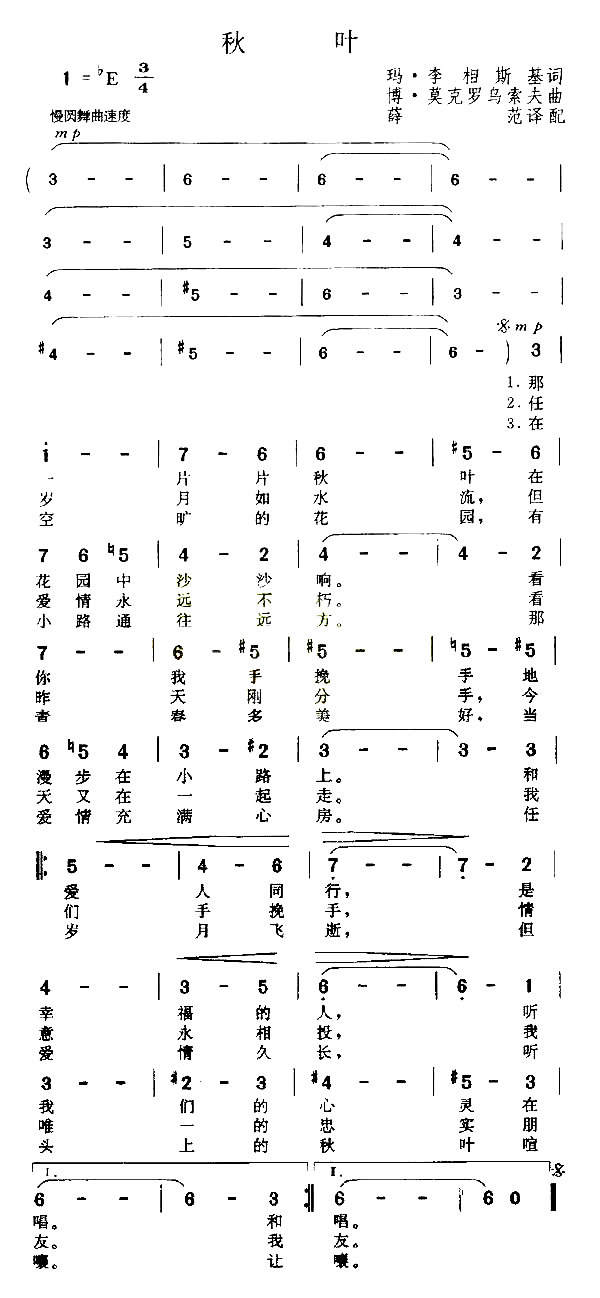 秋 叶
1 = ♭E 3/4
玛·李相斯基词
博·莫克罗乌索夫曲
薛 范译配
慢圆舞曲速度
mp
( 3 - - | 6 - - | 6 - - | 6 - - |
3 - - | 5 - - | 4 - - | 4 - - |
4 - - | #5 - - | 6 - - | 3 - - |
mp
#4 - - | #5 - - | 6 - - | 6 - ) 3 |
1. 那
2. 任
3. 在
i - - | 7 - 6 | 6 - - | #5 - 6 |
一 片 片 秋 叶 在
岁 月 如 水 流, 但
空 旷 的 花 园, 有
7 6 ♮5 | 4 - 2 | 4 - - | 4 - 2 |
花 园 中 沙 沙 响。 看
爱 情 永 远 不 朽。 看
小 路 通 往 远 方。 那
7 - - | 6 - #5 | #5 - - | ♮5 - #5 |
你 我 手 挽 手 地
昨 天 刚 分 手, 今
青 春 多 美 好, 当
6 ♮5 4 | 3 - #2 | 3 - - | 3 - 3 |
漫 步 在 小 路 上。 和
天 又 在 一 起 走。 我
爱 情 充 满 心 房。 任
5 - - | 4 - 6 | 7 - - | 7 - 2 |
爱 人 同 行, 是
们 手 挽 手, 情
岁 月 飞 逝, 但
4 - - | 3 - 5 | 6 - - | 6 - 1 |
幸 福 的 人, 听
意 永 相 投, 我
爱 情 久 长, 听
3 - - | #2 - 3 | #4 - - | #5 - 3 |
我 们 的 心 灵 在
唯 一 的 忠 实 朋
头 上 的 秋 叶 喧
I. II.
6 - - | 6 - 3 :| 6 - - | 6 0 ‖
唱。 和 唱。
友。 我 友。
嚷。 让 嚷。